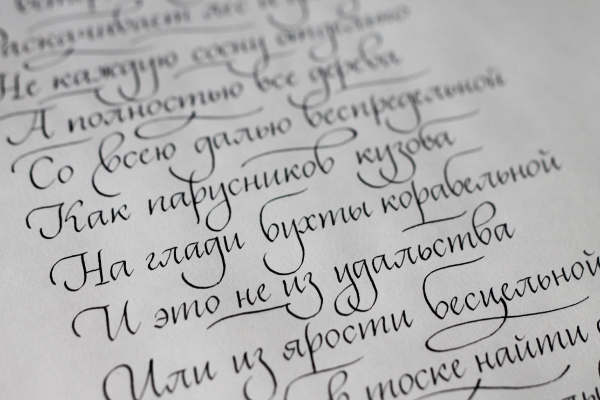 Раскачивает лес и
Не каждую сосну отдельно
А полностью все дерева
Со всею далью беспредельной
Как парусников кузова
На глади бухты корабельной
И это не из удальства
Или из ярости бесцельной
в тоске найти